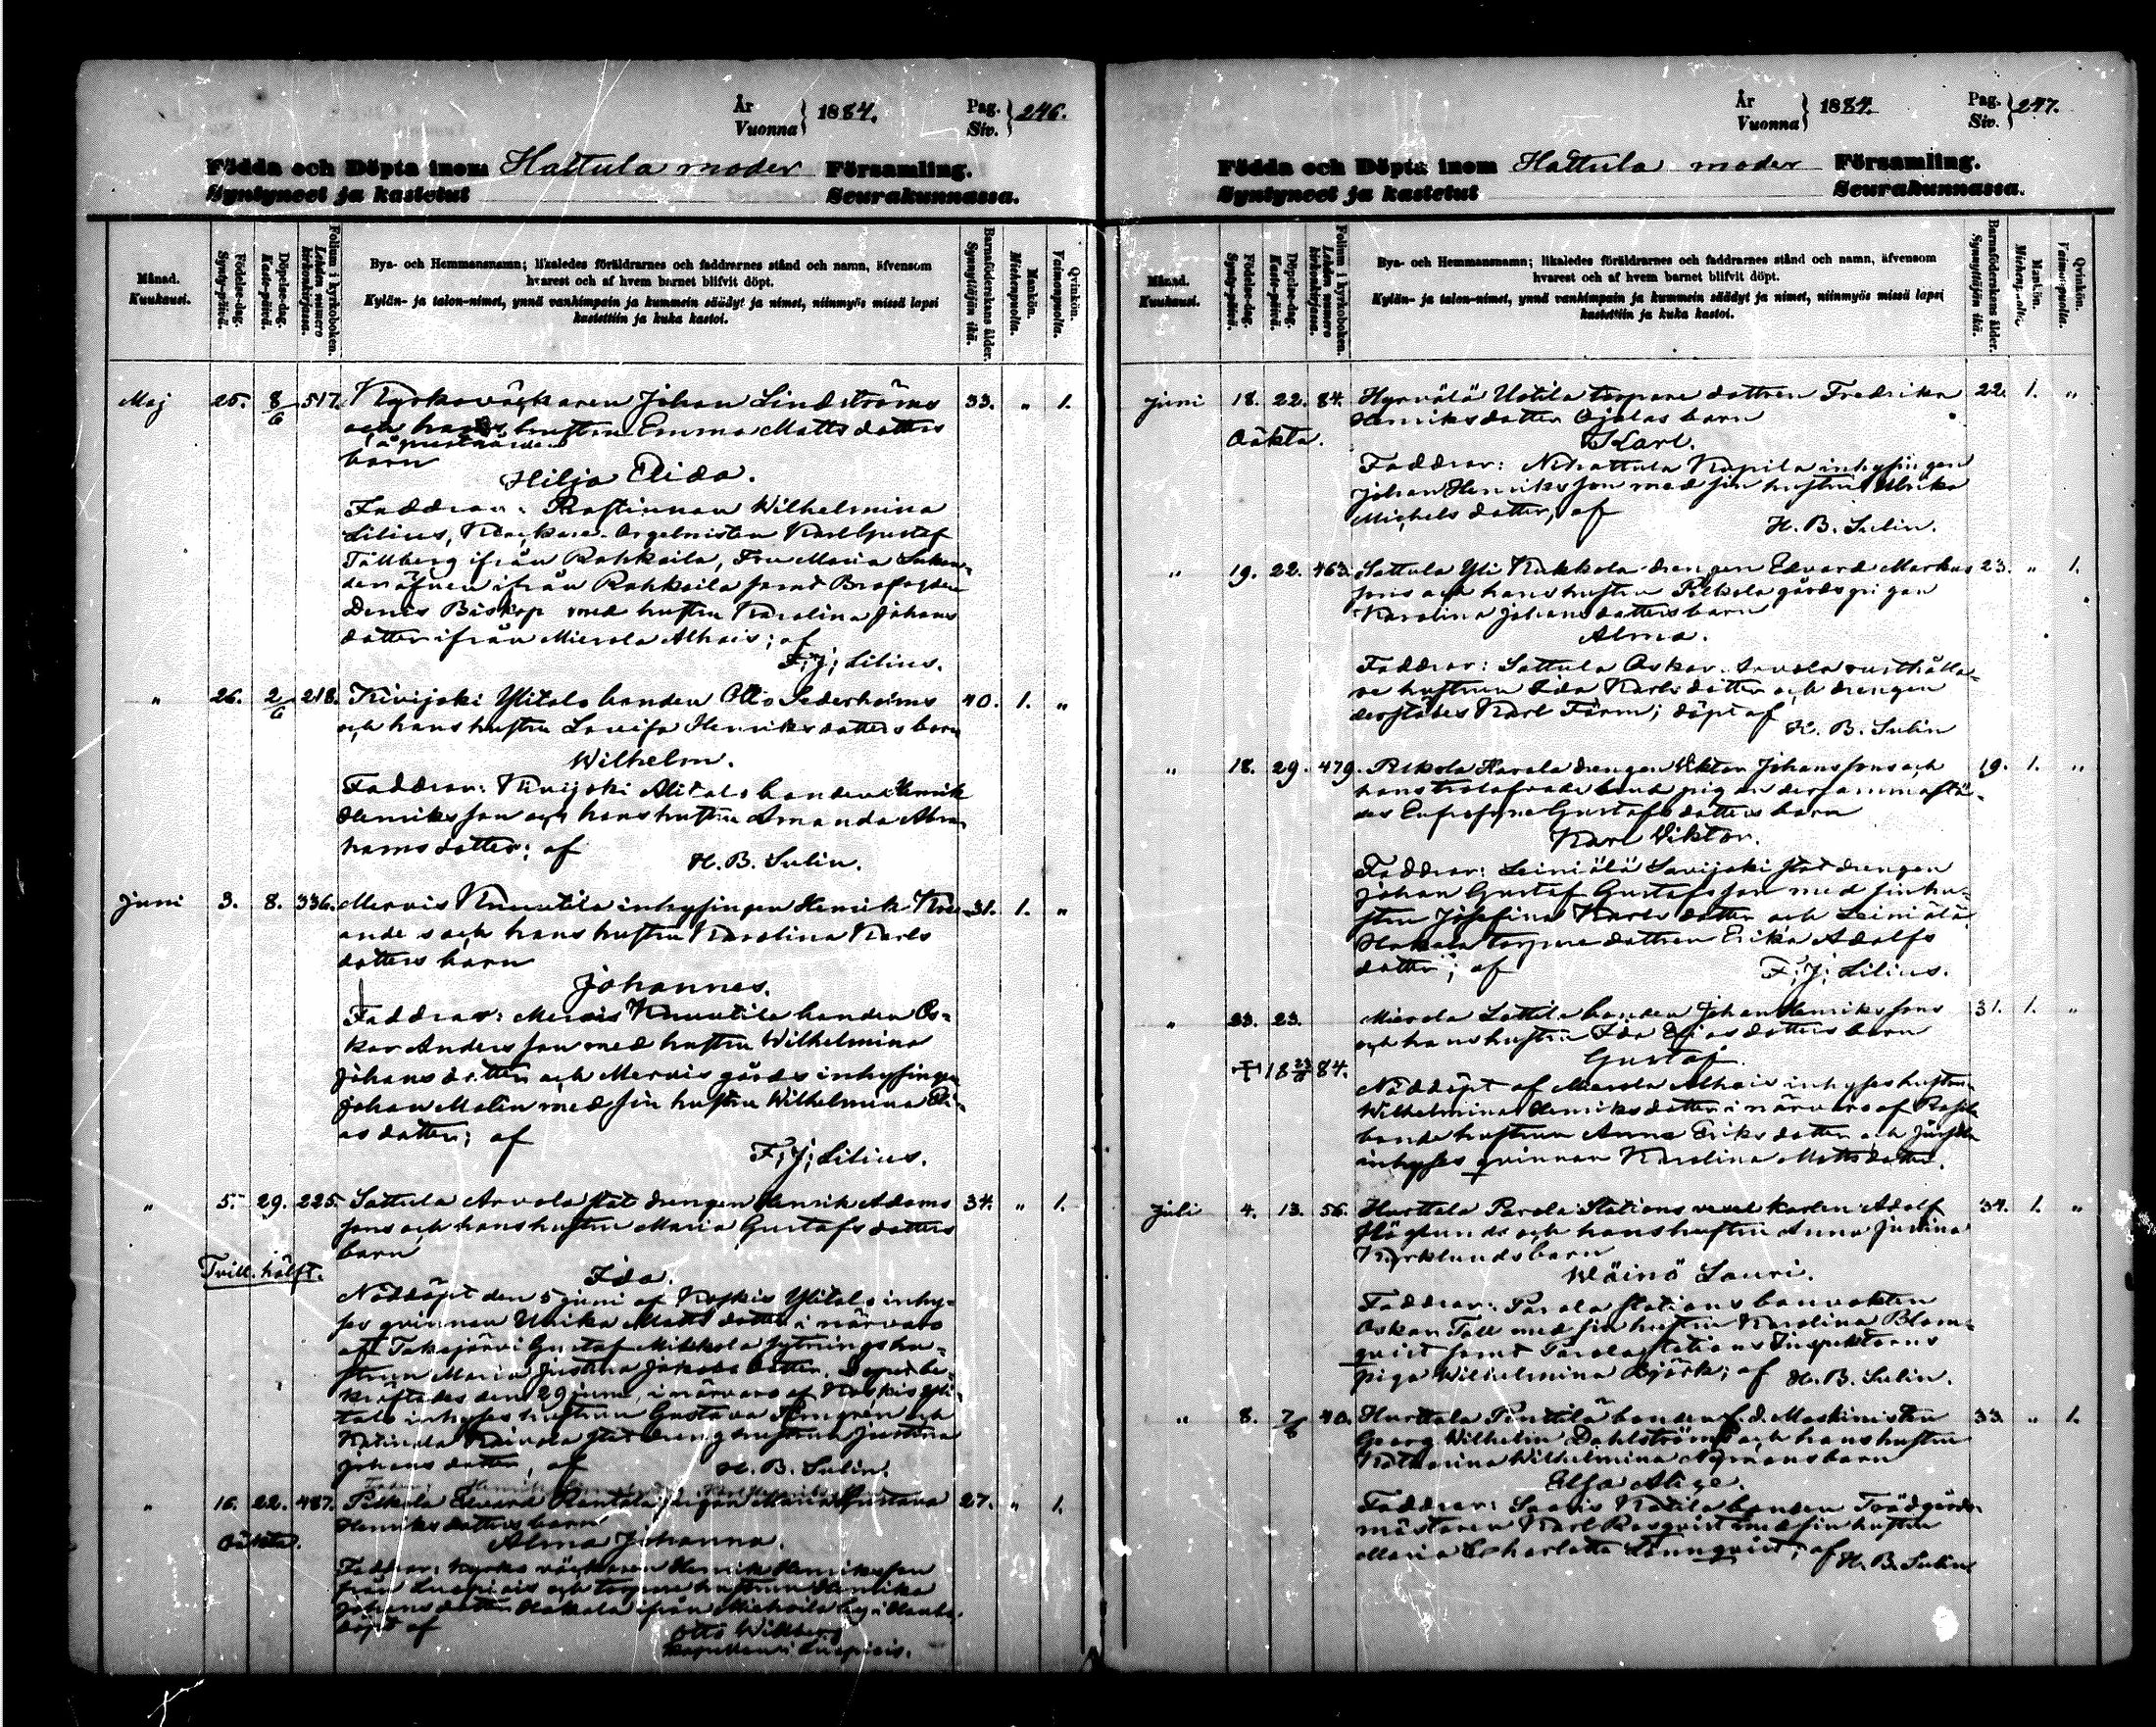 År
Vuonna } 1884.
Pag.
Siv. } 246.
Födda och Döpta inom Hattula moder Församling.
Syntyneet ja kastetut Seurakunnassa.
Månad.
Kuukausi.
Födelse-dag.
Synty-päivä.
Döpelse-dag.
Kaste-päivä.
Folium i kyrkoboken.
Lehden numero kirkonkirjassa.
Bya- och Hemmansnamn; likaledes föräldrarnes och faddrarnes stånd och namn, äfvensom
hvarest och af hvem barnet blifvit döpt.
Kylän- ja talon-nimet, ynnä vanhimpain ja kummein säädyt ja nimet, niinmyös missä lapsi
kastettiin ja kuka kastoi.
Barnaföderskans ålder.
Synnyttäjän ikä.
Mankön.
Miehenpuolta.
Qvinkön.
Vaimonpuolta.
Maj 25. 8/6 517. Kyrkoväktaren Johan Lindströms 33. " 1.
och hans hustru Emma Matts dotters
barn
Hilja Aida.
Faddrar: Prostinnan Wilhelmina
Lilius, Klockare-Orgelnisten Karl Gustaf
Tallberg ifrån Rahkoila, Fru Maria
ifrån Rahkoila samt
Denis Biskop med hustru Karolina Johans
dotter ifrån Mierola Alhais; af
F; J; Lilius.
" 26. 2/6 218. Kivijoki Ylitalo bonden Otto Sederholms 40. 1. "
och hans hustru Lovisa Henriks dotters barn
Wilhelm.
Faddrar: Kivijoki Alitalo bonden Henrik
Henriksson och hans hustru Amanda Abra-
hams dotter; af
H. B. Sulin.
Juni 3. 8. 336. Mervis Knuutila inhysingen Henrik 31. 1. "
och hans hustru Karolina Karls
dotters barn
Johannes.
Faddrar: Mervis Knuutila bonden Os-
kar Andersson med hustru Wilhelmina
Johans dotter och Mervis gårds inhysingen
Johan Malin med sin hustru Wilhelmina Eli-
as dotter; af
F; J; Lilius.
" 5. 29. 225. Sattula Arvola stat drengen Henrik Adams 34. " 1.
sons och hans hustru Maria Gustafs dotters
barn
Tvill. hälft.
Ida.
Nöddöpt den 5 juni af Koskis Ylitalo inhy-
ses qvinnan Ulrika Matts dotter i närvaro
af Takajärvi Gustaf Mikkola sytningshu-
strun Maria Justina Jakobs dotter. Dopet be-
kräftades den 29 juni i närvaro af Koskis Yli-
talo inhyses hustrun Gustava Almgrén och
Katinala Raivola stat drengs hustrun Justina
Johans dotter, af H. B. Sulin.
" 16. 22. 487. Pelkola Edvard Rantala pigan Maria Gustava 27. " 1.
Henriks dotters barn
oäkta.
Alma Johanna.
Faddrar: kyrko väktaren Henrik Henriksson
från Luopiois och torpare hustrun Henrika
Johans dotter Hakala ifrån
döpt af
Otto Willberg
kapellan i Luopiois.
År
Vuonna } 1884.
Pag.
Siv. } 247.
Födda och Döpta inom Hattula moder Församling.
Syntyneet ja kastetut Seurakunnassa.
Månad.
Kuukausi.
Födelse-dag.
Synty-päivä.
Döpelse-dag.
Kaste-päivä.
Folium i kyrkoboken.
Lehden numero kirkonkirjassa.
Bya- och Hemmansnamn; likaledes föräldrarnes och faddrarnes stånd och namn, äfvensom
hvarest och af hvem barnet blifvit döpt.
Kylän- ja talon-nimet, ynnä vanhimpain ja kummein säädyt ja nimet, niinmyös missä lapsi
kastettiin ja kuka kastoi.
Barnaföderskans ålder.
Synnyttäjän ikä.
Mankön.
Miehenpuolta.
Qvinkön.
Vaimonpuolta.
Juni 18. 22. 84. Hyrvälä Uotila torpare dottren Fredrika 22. 1. "
Henriks dotter Ojalas barn
Oäkta.
Karl.
Faddrar: Nihattula Kapila inhysingen
Johan Henriksson med sin hustru Ulrika
Michels dotter, af
H. B. Sulin.
" 19. 22. 463. Sattula Yli Kukkola drengen Edvard Markus 23. " 1.
sons och hans hustru Pelkola gårds pigan
Karolina Johans dotters barn
Alma.
Faddrar: Sattula Oskar Arvola rusthålla-
re hustrun Ida Karls dotter och drengen
derstädes Karl Färm; döpt af
H. B. Sulin
" 18. 29. 479. Pelkola Harala drengen Viktor Johanssons och 19. 1. "
hans trolofvade brud pigan dersammastä-
des Eufrosyne Gustafs dotters barn
Karl Viktor.
Faddrar: Leiniälä Savijoki stat drengen
Johan Gustaf Gustafsson med sin hu-
stru Josefina Karls dotter och Leiniälä
Hakala torpare dottren Erika Adolfs
dotter; af F; J; Lilius.
" 23. 23. Mierola Lottila bonden Johan Henrikssons 31. 1. "
och hans hustru Ida Elias dotters barn
Gustaf
† 18 23/6 84.
Nöddöpt af Mierola Alhais inhyses hustrun
Wilhelmina Henriks dotter i närvaro af
bonde hustrun Anna Eriks dotter och
inhyses qvinnan Karolina Matts dotter.
Juli 4. 13. 56. Hurttala Parola Stations vexel karlen Adolf 34. 1. "
Höglunds och hans hustru Anna Justina
Kyrklunds barn
Wäinö Lauri.
Faddrar: Parola stations banvakten
Oskar Tall med sin hustru Karolina Blom-
qvist samt Parola stations Inspektorns
piga Wilhelmina Björk; af H. B. Sulin.
" 8. 7/8 40. Hurttala Penttilä bonden f. d. Maskinisten 33. " 1.
Georg Wilhelm Dahlströms och hans hustru
Katharina Wilhelmina Nymans barn
Elsa Alice.
Faddrar: Saaris Katila bonden Trädgårds-
mästaren Karl Rosqvist med sin hustru
Maria Charlotta Lönnqvist; af H. B. Sulin